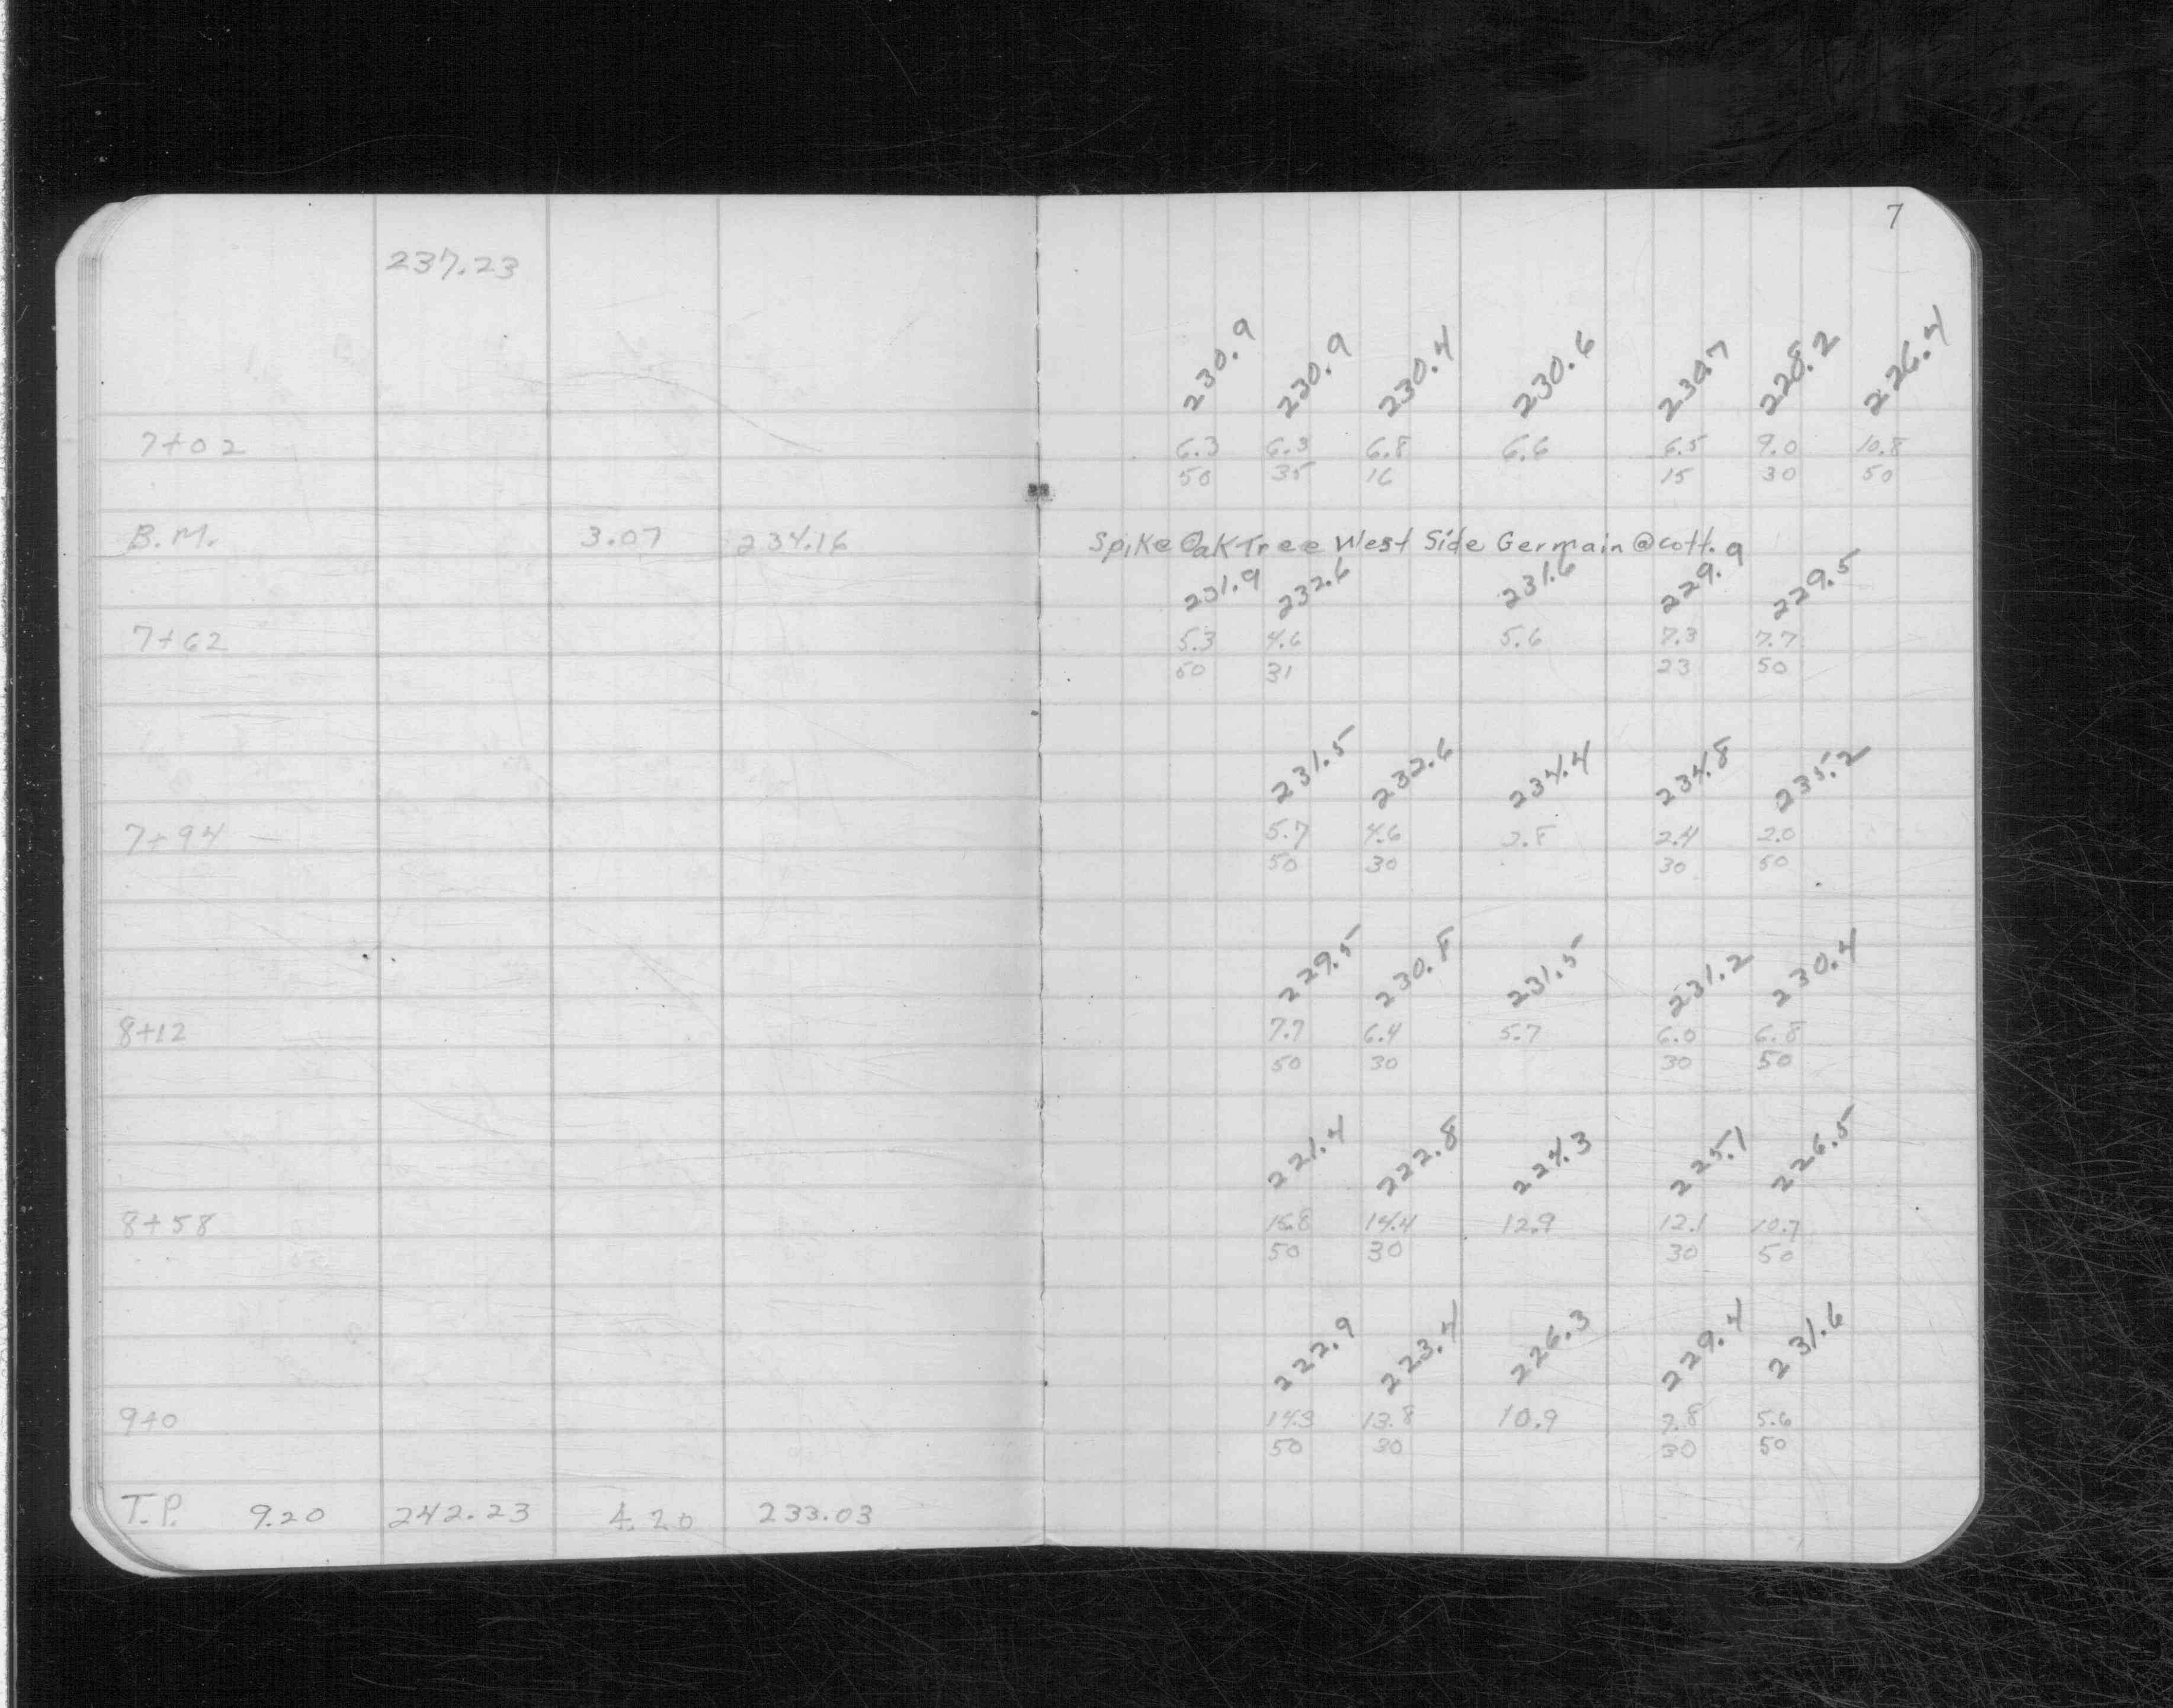 7
237.23
230.9 230.9 230.4 230.6 230.7 228.2 226.4
7+02 6.3 6.3 6.8 6.6 6.5 9.0 10.8
50 35 16 15 30 50
B.M. 3.07 234.16 Spike Oak Tree West Side Germain @ Cott.
231.9 232.6 231.6 229.9 229.5
7+62 5.3 4.6 5.6 7.3 7.7
50 31 23 50
231.5 232.6 234.4 234.8 235.2
7+94 5.7 4.6 2.8 2.4 2.0
50 30 30 50
229.5 230.8 231.5 231.2 230.4
8+12 7.7 6.4 5.7 6.0 6.8
50 30 30 50
221.4 222.8 224.3 225.1 226.5
8+58 15.8 14.4 12.9 12.1 10.7
50 30 30 50
222.9 223.4 226.3 229.4 231.6
9+0 14.3 13.8 10.9 7.8 5.6
50 30 30 50
T.P. 9.20 242.23 4.20 233.03